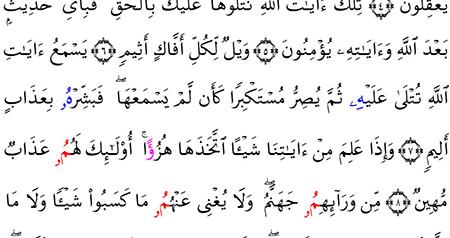 يَعۡقِلُونَ ﴿٤﴾ تِلۡكَ ءَايَٰتُ ٱللَّهِ نَتۡلُوهَا عَلَيۡكَ بِٱلۡحَقِّۖ فَبِأَيِّ حَدِيثِۭ
بَعۡدَ ٱللَّهِ وَءَايَٰتِهِۦ يُؤۡمِنُونَ ﴿٥﴾ وَيۡلٞ لِّكُلِّ أَفَّاكٍ أَثِيمٖ ﴿٦﴾ يَسۡمَعُ ءَايَٰتِ
ٱللَّهِ تُتۡلَىٰ عَلَيۡهِۦ ثُمَّ يُصِرُّ مُسۡتَكۡبِرٗا كَأَن لَّمۡ يَسۡمَعۡهَاۖ فَبَشِّرۡهُۥ بِعَذَابٍ
أَلِيمٖ ﴿٧﴾ وَإِذَا عَلِمَ مِنۡ ءَايَٰتِنَا شَيۡـًٔا ٱتَّخَذَهَا هُزُؤًاۚ أُوْلَٰٓئِكَ لَهُمُۥ عَذَابٞ
مُّهِينٞ ﴿٨﴾ مِّن وَرَآئِهِمُۥ جَهَنَّمُۖ وَلَا يُغۡنِي عَنۡهُمُۥ مَا كَسَبُواْ شَيۡـٔٗا وَلَا مَا